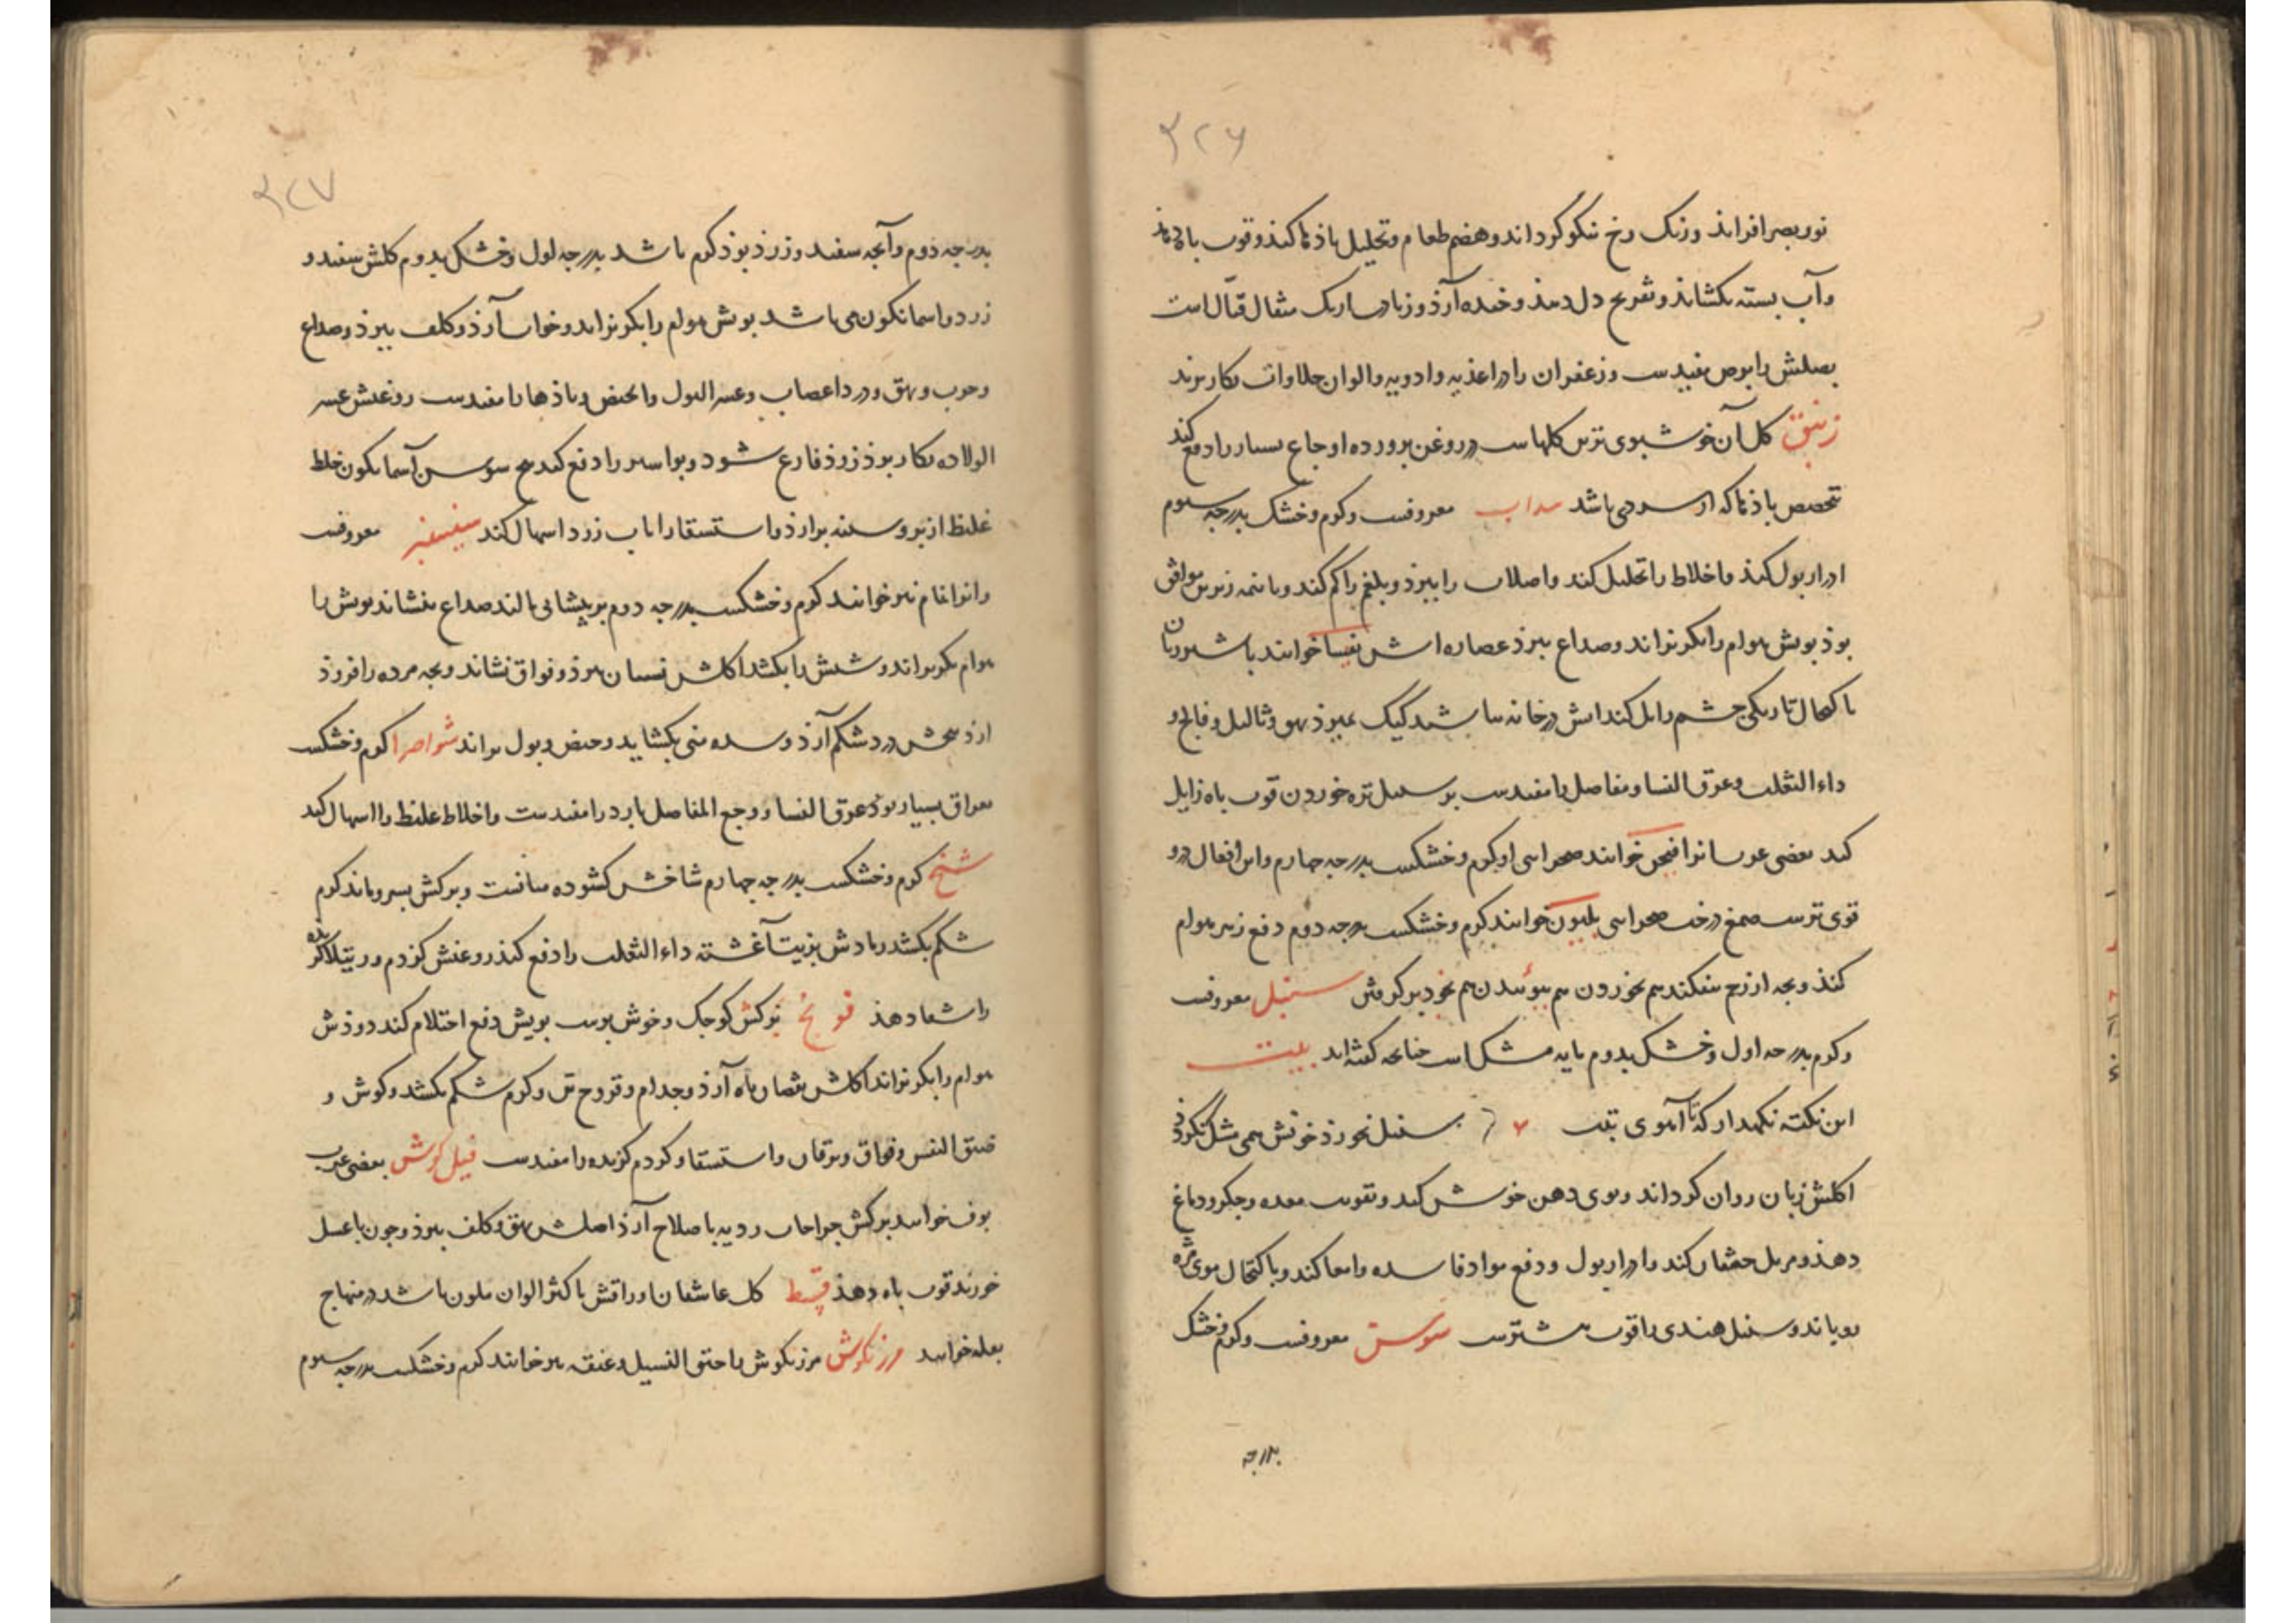 ۳۲۶
نور بصر افزاید ورنک رخ نیکو کرداند وهضم طعام وتحلیل باذها کند وقوت باه دهد
وآب بسته بکشاید وتفریح دل دهذ وخنده آرذ وزیاد یک مثقال قتّال است
بصلش را بوص مفیدست وزعفران را در اغذیه وادویه والوان حلاوات بکار برند
زنبق کل آن خوشبوی ترین کلهاست در روغن پرورده اوجاع بسیار را دفع کند
تخصیص باذها که از سردی باشد سداب معروفست وکرم وخشک بدرجه سیوم
ادرار بول کند واخلاط را تحلیل کند وا را ببرذ وبلغم را کم کند وبا همه موافق
بوذ بویش هوام را بکریزاند وصداع ببرذ عصاره اش خوانند با شیر زنان
باکتحال تاریکی چشم زایل کند اش در خانه باشد کیک بمیرذ بهق وثالیل وفالج و
داء الثعلب وعرق النسا ومفاصل را مفیدست بر سبیل تره خوردن قوت باه زایل
کند بعضی عرب آنرا فیجن خوانند صحرایی او کرم وخشکست بدرجه چهارم واین افعال درو
قوی ترست صمغ درخت صحرایی خوانند کرم وخشکست بدرجه دوم دفع زهر هوام
کند وبچه از رحم بیفکند هم بخوردن هم ببوئیدن هم بخود برکرفتن سنبل معروفست
وکرم بدرجه اول وخشک بدوم مایه مشک است چنانچه کفته اند بیت
این نکته نکهدار که تا آهوی تبت سنبل نخورذ خونش همی مشک نکردذ
اکلش زبان روان کرداند وبوی دهن خوش کند وتقویت معده وجکر ودماغ
دهذ ومزیل خفقان کند وادرار بول ودفع مواد فاسده وامعا کند وباکتحال موی مژه
رویاند وسنبل هندی را قوت بیشترست سوسن معروفست وکرم وخشک
بدرجه
۳۲۷
بدرجه دوم وآنچه سفید وزرد بوذ کرم باشد بدرجه اول وخشک بدوم کلش سفید و
زرد واسمانکون می باشد بویش هوام را بکریزاند وخواب آرذ وکلف ببرذ وصداع
وجرب وبهق ودرد اعصاب وعسر البول والحیض وباذها را مفیدست روغنش عسر
الولاده بکار برذ زوذ فارغ شود وبواسیر را دفع کند بیخ سوسن آسمانکون خلط
غلیظ از برو سینه برآرذ واستسقا را با آب زرد اسهال کند معروفست
وانرا نمام نیز خوانند کرم وخشکست بدرجه دوم بر پیشانی مالند صداع بنشاند بویش را
هوام بکریزاند وشپش را بکشد اکلش نسیان ببرذ وفواق نشاند وبچه مرده را فروذ
ارد درد شکم آرذ وسده منی بکشاید وحیض وبول براند شواصرا کرم وخشکست
بعراق بسیار بوذ عرق النسا ووجع المفاصل بارد را مفیدست واخلاط غلیظ را اسهال کند
شیح کرم وخشکست بدرجه چهارم شاخش کشوده میانست وبرکش بسرو ماند کرم
شکم بکشد رمادش بزیت آغشته داء الثعلب را دفع کند روغنش کزدم ورتیلا کزیده
را شفا دهذ فونج برکش کوچک وخوش بوست بویش دفع احتلام کند دوذش
هوام را بکریزاند اکلش نقصان باه آرذ وجذام وقروح تن وکرم شکم بکشد وکوش و
ضیق النفس وفواق ویرقان واستسقا وکزدم کزیده را مفیدست فیل کوش بعضی عرب
لوف خوانند برکش جراحات ردیه باصلاح آرذ اصلش بهق وکلف ببرذ وچون با عسل
خورند قوت باه دهذ قسط کل عاشقان اوراقش باکثر الوان ملون باشد در منهاج
بعله خوانند مرزنکوش مرزنکوش را حبق الفیل وعنقز نیز خوانند کرم وخشکست بدرجه سیوم